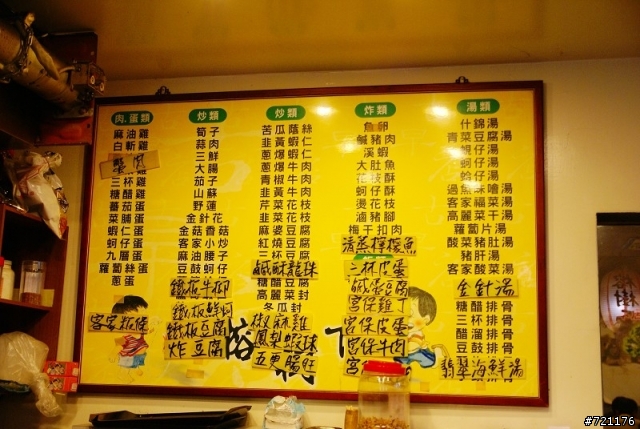 肉、蛋類
麻油雞
白斬雞
三杯雞
糖醋雞
蕃茄蛋
菜脯蛋
蝦仁蛋
蚵仔蛋
九層蛋
蘿蔔絲蛋
蔥蛋
客家粄條
炒類
筍子
蒜肉
三鮮
大腸
茄子
山蘇
野蓮
金針花
金菇菇
客家小炒
麻油腰子
豆鼓蚵仔
鐵板牛柳
鐵板鮮蚵
鐵板豆腐
炸豆腐
炒類
苦瓜蔭絲
韭黃蝦仁
蔥爆蝦仁
蔥爆牛肉
青椒牛肉
韭黃牛肉
韭菜花枝
芹菜花枝
麻婆豆腐
紅燒豆腐
鹹酥龍珠
高麗菜封
冬瓜封
椒麻雞
鳳梨蝦球
五更腸旺
炸類
魚卵
鹹豬肉
溪蝦
大肚魚
花枝酥
蚵仔酥
燙花枝
滷豬腳
梅干扣肉
清蒸檸檬魚
三杯皮蛋
鹹蛋豆腐
宮保雞丁
宮保皮蛋
宮保牛肉
宮
湯類
什錦湯
青菜豆腐湯
蚵仔湯
蛤仔湯
客家福菜湯
高麗菜干湯
蘿蔔片湯
酸菜豬肚湯
豬肝湯
客家酸菜湯
金針湯
糖醋排骨
三杯排骨
醋溜排骨
豆鼓排骨
翡翠海鮮湯
#721176